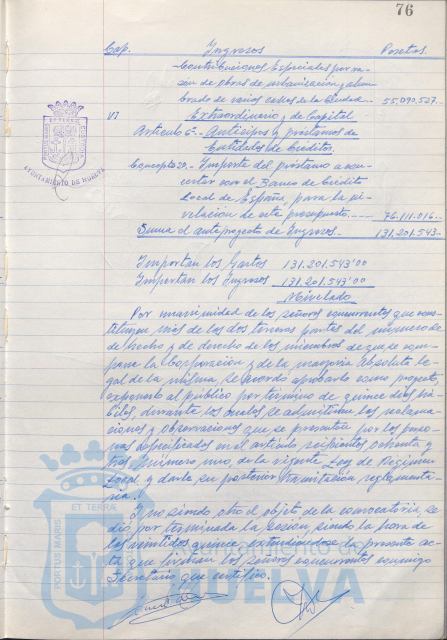 76
Cap. Ingresos Pesetas
Contribuciones Especiales por ra-
zón de obras de urbanización y alum-
brado de varias calles de la Ciudad. 55.090.527.-
VI Extraordinario y de Capital
Artículo 6º.- Anticipos y préstamos de
Entidades de Crédito.
Concepto 20.- Importe del préstamo a con-
certar con el Banco de Crédito
Local de España, para la ni-
velación de este presupuesto.---- 76.111.016.-
Suma el anteproyecto de Ingresos.- 131.201.543.-
Importan los Gastos 131.201.543'00
Importan los Ingresos 131.201.543'00
Nivelado
Por unanimidad de los señores concurrentes que cons-
tituyen más de las dos terceras partes del número de
de hecho y de derecho de los miembros de que se com-
pone la Corporación y de la mayoría absoluta le-
gal de la misma, se acordó aprobarlo como proyecto,
exponerlo al público por término de quince días há-
biles, durante los cuales se admitirán las reclama-
ciones y observaciones que se presenten por las perso-
nas especificadas en el artículo seiscientos ochenta y
tres, número uno, de la vigente Ley de Régimen
Local y darle su posterior tramitación reglamenta-
ria.
Y no siendo otro el objeto de la convocatoria, se
dió por terminada la sesión, siendo la hora de
las veintidos quince, extendiéndose la presente ac-
ta que firman los señores concurrentes conmigo
Secretario, que certifico.
AYUNTAMIENTO DE HUELVA
PORTUS MARIS ET TERRAE
Ayuntamiento de
HUELVA